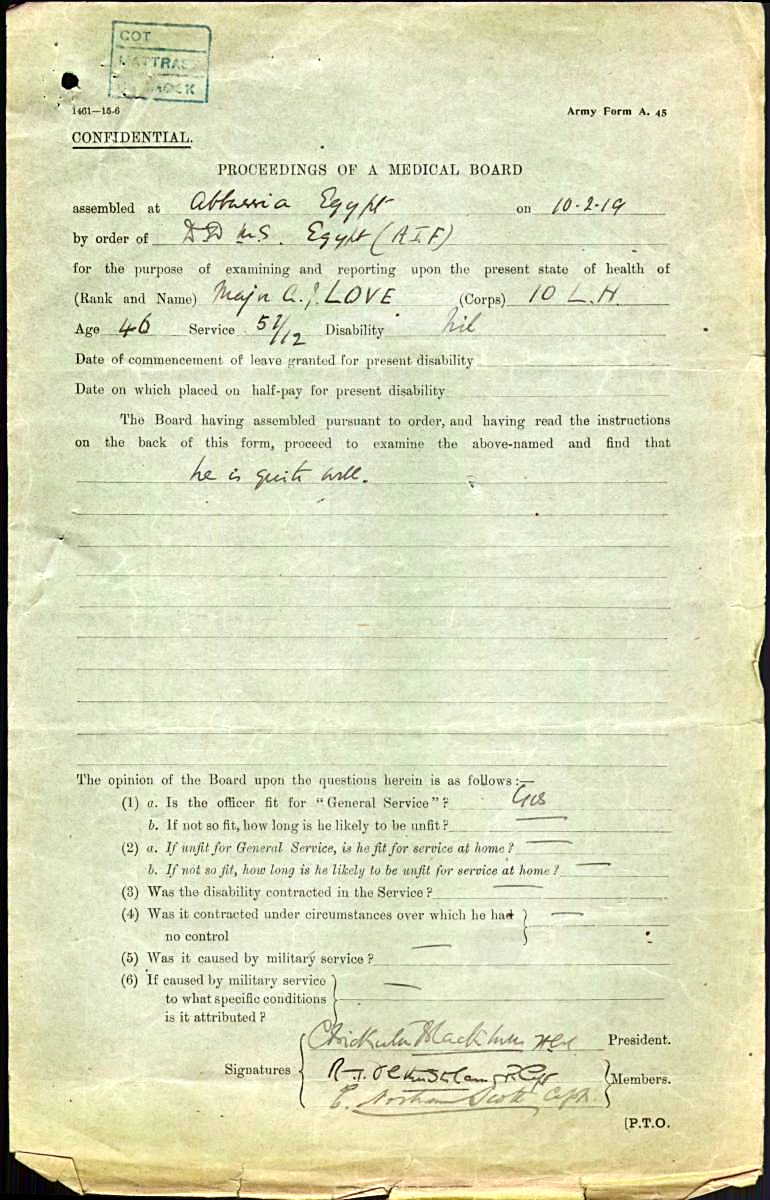 COT
MATTRASS
1461—15-6
Army Form A. 45
CONFIDENTIAL.
PROCEEDINGS OF A MEDICAL BOARD
assembled at Abbassia Egypt on 10-2-19
by order of DDMS. Egypt (AIF)
for the purpose of examining and reporting upon the present state of health of
(Rank and Name) Major A. J. LOVE (Corps) 10 L.H.
Age 46 Service 5 Disability Nil
Date of commencement of leave granted for present disability
Date on which placed on half-pay for present disability
The Board having assembled pursuant to order, and having read the instructions
on the back of this form, proceed to examine the above-named and find that
he is quite well.
The opinion of the Board upon the questions herein is as follows:—
(1) a. Is the officer fit for "General Service"? Yes
b. If not so fit, how long is he likely to be unfit? —
(2) a. If unfit for General Service, is he fit for service at home? —
b. If not so fit, how long is he likely to be unfit for service at home? —
(3) Was the disability contracted in the Service? —
(4) Was it contracted under circumstances over which he had —
no control
(5) Was it caused by military service? —
(6) If caused by military service
to what specific conditions —
is it attributed?
President.
Signatures
Members.
Scott Capt.
[P.T.O.